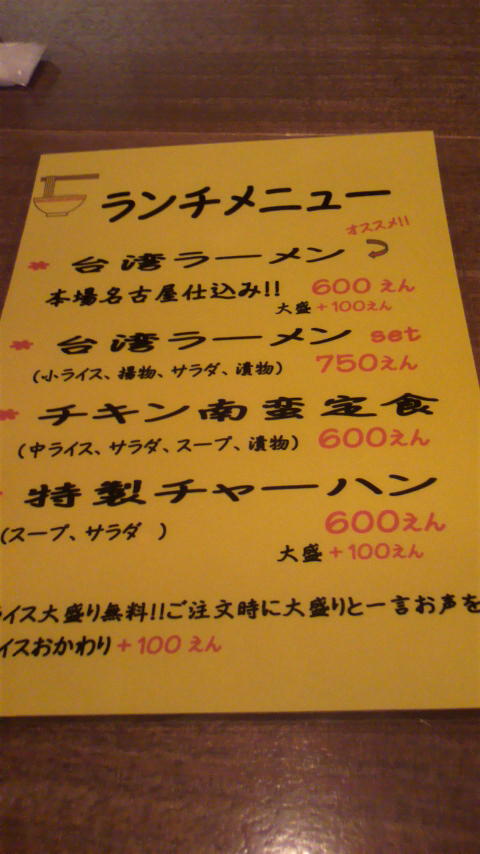 ランチメニュー
オススメ!!
* 台湾ラーメン
本場名古屋仕込み!! 600えん
大盛+100えん
* 台湾ラーメン set
(小ライス、揚物、サラダ、漬物) 750えん
* チキン南蛮定食
(中ライス、サラダ、スープ、漬物) 600えん
特製チャーハン
(スープ、サラダ ) 600えん
大盛+100えん
イス大盛り無料!!ご注文時に大盛りと一言お声を
イスおかわり+100えん